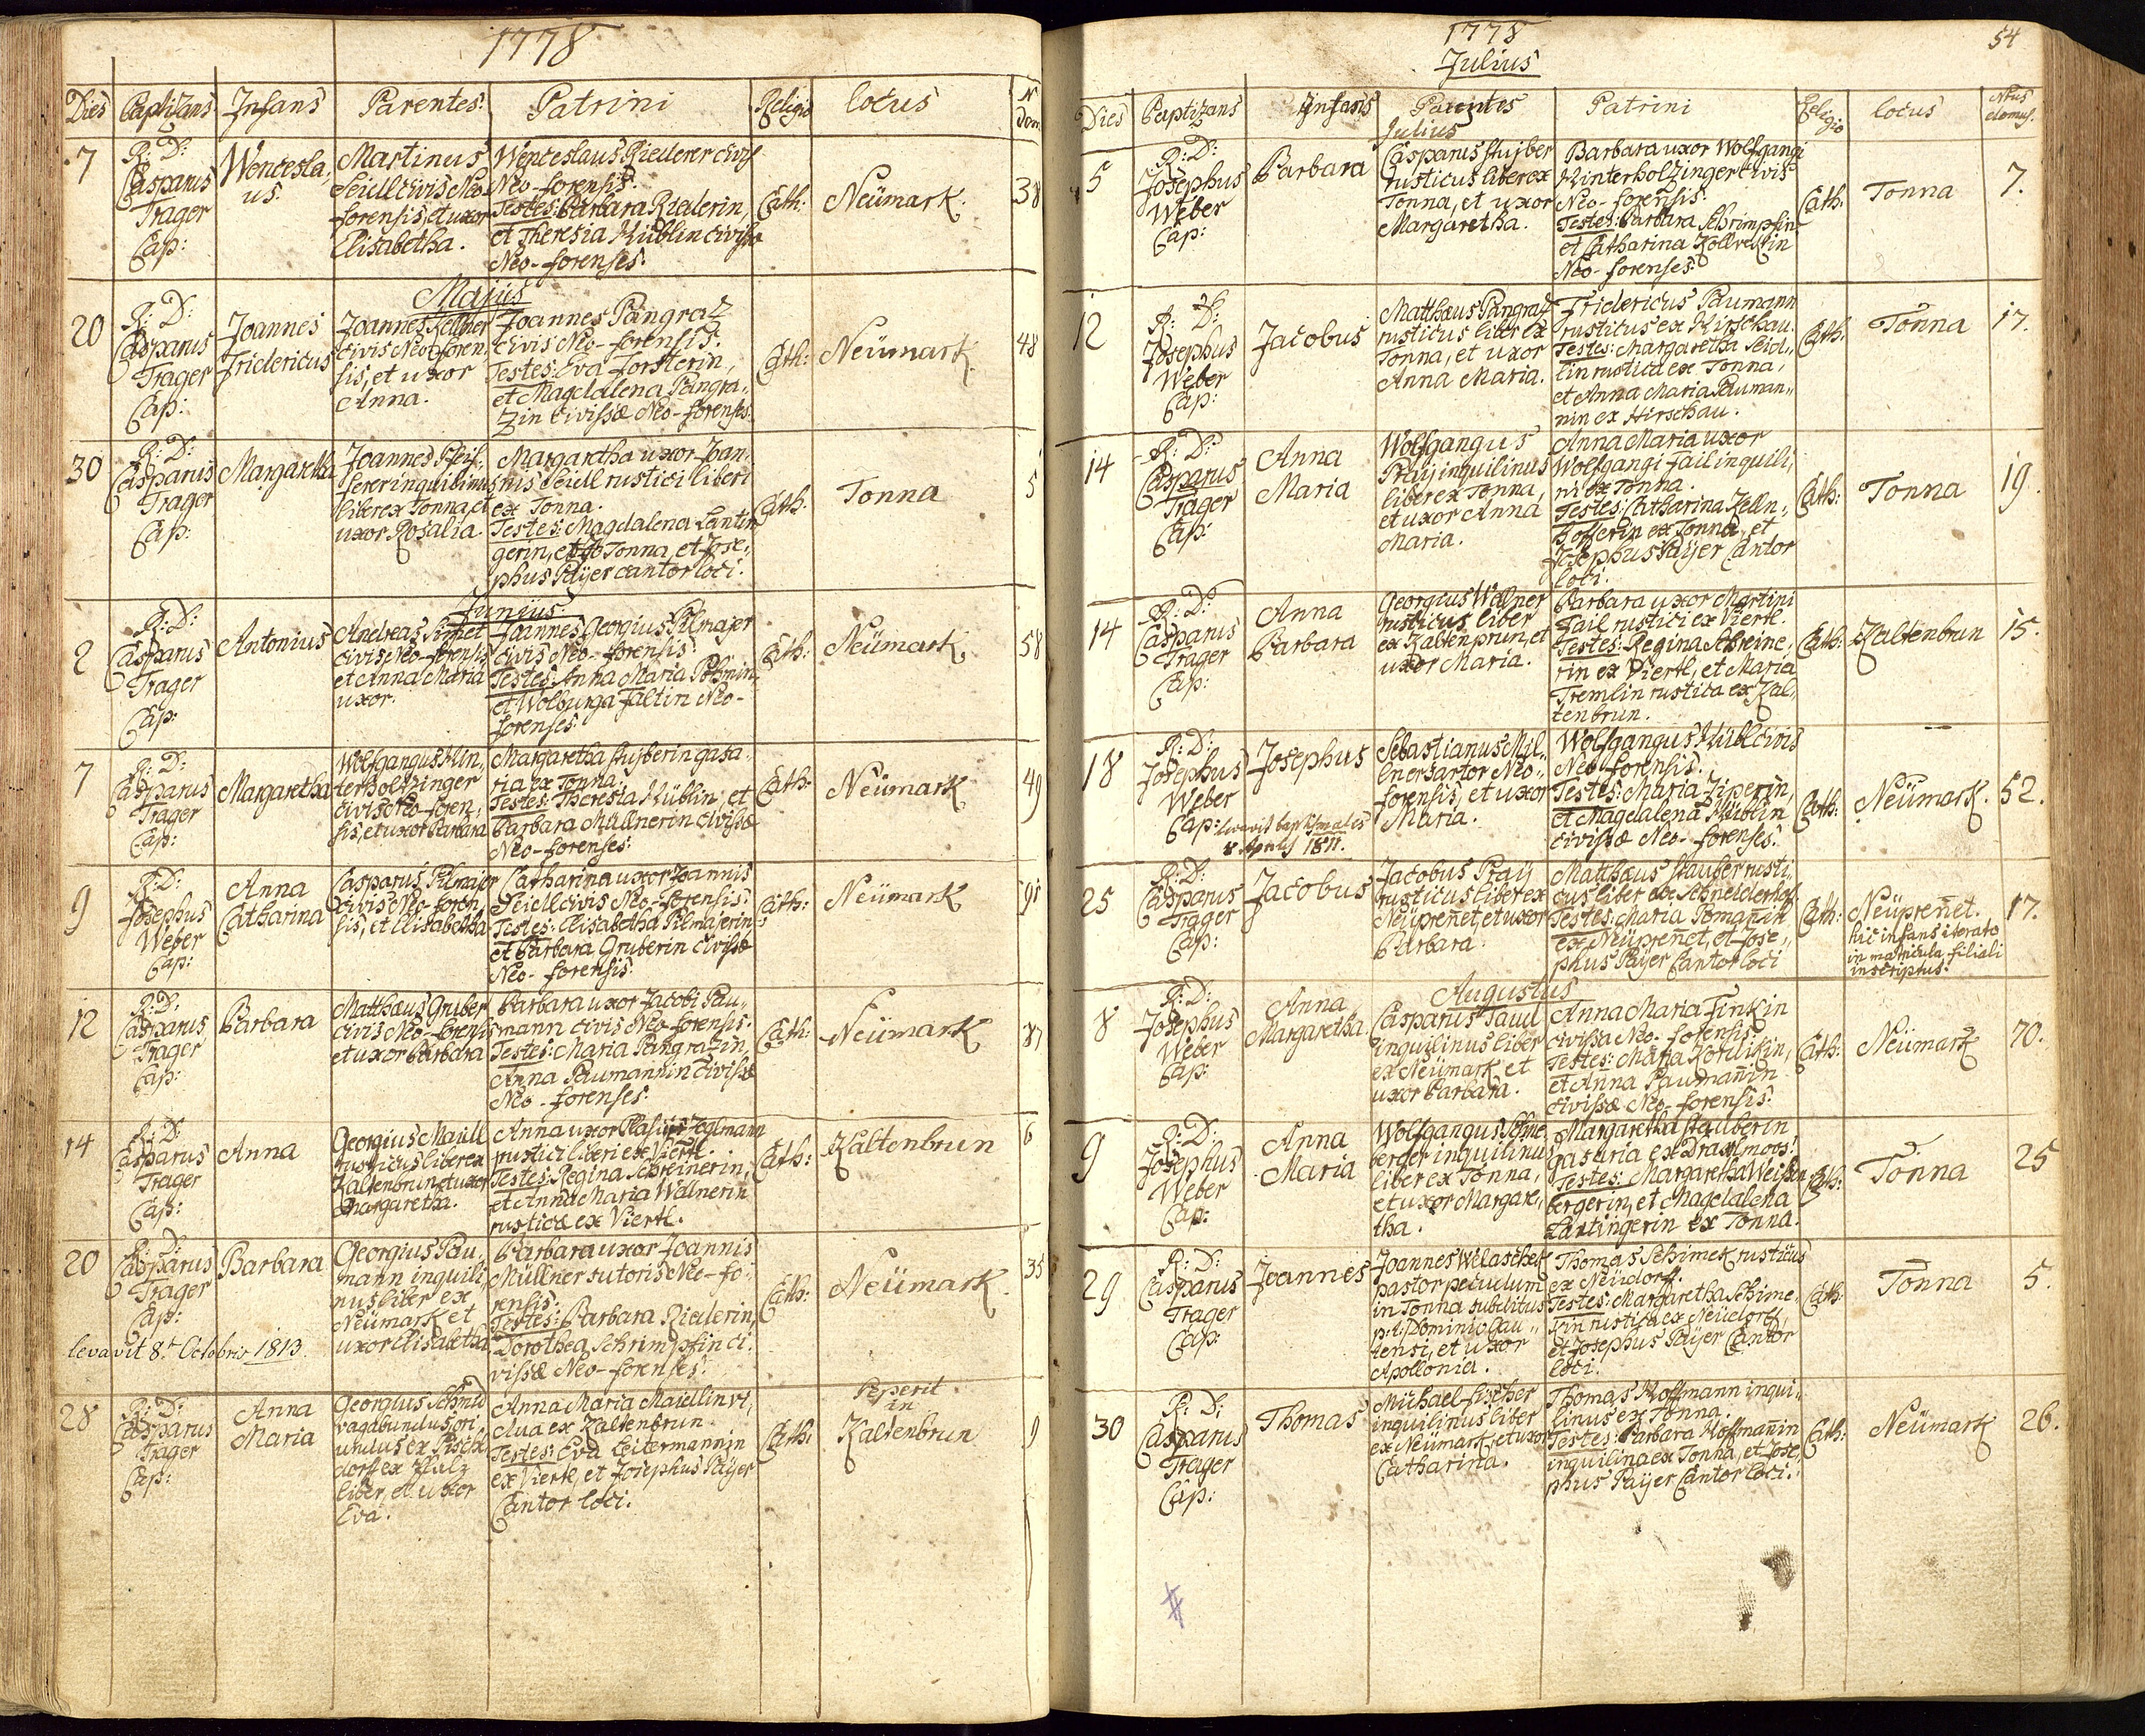 1778
Dies Baptizans Infans Parentes: Patrini Religio locus N dom
7
R: D:
Casparus
Trager
Cap:
Wencesla,
us.
Martinus
Seidl civis Neo-
forensis, et uxor
Elisabetha.
Wenceslaus Riederer civis
Neo-forensis.
Testes: Barbara Riederin,
et Theresia Küblin civissæ
Neo-forenses.
Cath:
Neümark.
38
Majus
20
R: D:
Casparus
Trager
Cap:
Joannes
Fridericus
Joannes Kellner
civis Neo-foren,
sis, et uxor
Anna.
Joannes Pangraz
civis Neo-forensis.
Testes: Eva Forsterin,
et Magdalena Pangra,
zin civissæ Neo-forenses.
Cath:
Neümark.
48
30
R: D:
Casparus
Trager
Cap:
Margaretha
Joannes Pfeif,
ferer inquilinus
liber ex Tonna, et
uxor Rosalia.
Margaretha uxor Joan,
nis Seidl rustici liberi
ex Tonna.
Testes: Magdalena Lantin,
gerin, ex Tonna, et Jose,,
phus Paÿer cantor loci.
Cath:
Tonna
5
Junius.
2
R: D:
Casparus
Trager
Cap:
Antonius
Andreas Simet
civis Neo-forensis
et Anna Maria
uxor.
Joannes Georgius Pilmajer
civis Neo-forensis.
Testes: Anna Maria
et Wolburga Faltin Neo-
forenses.
Cath:
Neümark.
58
7
R: D:
Casparus
Trager
Cap:
Margaretha
Wolfgangus Hin,
terholtzinger
civis Neo-foren,
sis, et uxor Barbara
Margaretha Stujberin gasa,
ria ex Tonna.
Testes: Theresia Küblin, et
Barbara Müllnerin civissæ
Neo-forenses.
Cath:
Neümark
49
9
R: D:
Josephus
Weber
Cap:
Anna
Catharina
Casparus Pilmajer
civis Neo-foren,
sis, et Elisabetha
Catharina uxor Joannis
Seidl civis Neo-forensis.
Testes: Elisabetha Pilmajerin
et Barbara Gruberin civissæ
Neo-forensis.
Cath:
Neümark
12
R: D:
Casparus
Trager
Cap:
Barbara
Matthæus Gruber
civis Neo-forensis
et uxor Barbara
Barbara uxor Jacobi Pau,,
mann civis Neo-forensis.
Testes: Maria Pangrazin,
Anna Paumannin civissæ
Neo-forenses.
Cath:
Neümark
87
14
R: D:
Casparus
Trager
Cap:
Anna
Georgius Maidl
rusticus liber ex
Kaltenbrun et uxor
Margaretha.
Anna uxor Plasii Zeglmann
rustici liberi ex Viertl.
Testes: Regina Schreinerin,
et Anna Maria Wallnerin
rusticæ ex Viertl.
Cath:
Kaltenbrun
6
20
R: D:
Casparus
Trager
Cap:
Barbara
Georgius Pau,
mann inquili,
nus liber ex
Neümark et
uxor Elisabetha
Barbara uxor Joannis
Müllner sutoris Neo-fo,
rensis.
Testes: Barbara Riederin,
Dorothea Schrimpfin ci,
vissæ Neo-forenses.
Cath:
Neümark.
35
levavit 8t Octobris 1813.
28
R: D:
Casparus
Trager
Cap:
Anna
Maria
Georgius Schmid
vagabundus, ori
undus ex Fisch
dorf ex Pfalz
liber, et uxor
Eva.
Anna Maria Maiedlin vi,
dua ex Kaltenbrun.
Testes: Eva Leitermannin
ex Viertl, et Josephus Paÿer
Cantor loci.
Cath:
Peperit
in
Kaltenbrun
9
1778
54
Julius
Dies Baptizans Infans Parentes Patrini Religio locus Nrus domus.
Julius
5
R: D:
Josephus
Weber
Cap:
Barbara
Casparus Stujber
rusticus liber ex
Tonna, et uxor
Margaretha.
Barbara uxor Wolfgangi
Hinterholzinger civis
Neo-forensis.
Testes: Barbara Schrimpfin
et Catharina
Neo-forenses.
Cath.
Tonna
7.
12
R: D:
Josephus
Weber
Cap:
Jacobus
Matthæus Pangraz
rusticus liber ex
Tonna, et uxor
Anna Maria.
Fridericus Paumann
rusticus ex Hirschau.
Testes: Margaretha Seid,,
lin rustica ex Tonna,
et Anna Maria Pauman,,
nin ex Hirschau.
Cath.
Tonna
17.
14
R: D:
Casparus
Trager
Cap:
Anna
Maria
Wolfgangus
Praÿ inquilinus
liber ex Tonna,
et uxor Anna
Maria.
Anna Maria uxor
Wolfgangi Fail inquili,
ni ex Tonna.
Testes: Catharina Kelln,,
hofferin ex Tonna, et
Josephus Paÿer Cantor
loci.
Cath:
Tonna
19.
14
R: D:
Casparus
Trager
Cap:
Anna
Barbara
Georgius Wallner
rusticus liber
ex Kaltenprun, et
uxor Maria.
Barbara uxor Martini
Fail rustici ex Viertl.
Testes: Regina Schreine,
rin ex Viertl, et Maria
Tremlin rustica ex Kal,
tenbrun.
Cath:
Kaltenbrun
15.
18
R: D:
Josephus
Weber
Cap:
Josephus
levavit baptismales
8 Aprilis 1811.
Sebastianus Mil,,
lner sartor Neo,,
forensis, et uxor
Maria.
Wolfgangus Kübl civis
Neo-forensis.
Testes: Maria Ziperin,
et Magdalena Küblin
civissæ Neo-forenses.
Cath:
Neümark.
52.
25
R: D:
Casparus
Trager
Cap:
Jacobus
Jacobus Praÿ
rusticus liber ex
Neüpreñet, et uxor
Barbara.
Matthæus Stauber rusti,
cus liber ex Schneiderhof.
Testes: Maria Tomañin
ex Neüpreñet, et Jose,,
phus Paÿer Cantor loci
Cath:
Neüpreñet.
hic infans iterato
in matricula filiali
inscriptus.
17.
Augustus
8
R: D:
Josephus
Weber
Cap:
Anna
Margaretha
Casparus Paul
inquilinus liber
ex Neümark et
uxor Barbara.
Anna Maria Finkin
civissa Neo-forensis.
Testes: Maria Kordikin,
et Anna Paumañin
civissæ Neo-forensis.
Cath:
Neümark
70.
9
R: D:
Josephus
Weber
Cap:
Anna
Maria
Wolfgangus Schne,
berger inquilinus
liber ex Tonna,
et uxor Margare,
tha.
Margaretha Stauberin
gasaria ex Draxlmoos.
Testes: Margaretha Weissen
bergerin, et Magdalena
Lantingerin ex Tonna.
Cath:
Tonna
25
29
R: D:
Casparus
Trager
Cap:
Joannes
Joannes Welaschek
pastor pecudum
in Tonna subditus
p: t: Dominio Gau,,
tensi, et uxor
Apollonia.
Thomas Schimek rusticus
ex Neüdorf.
Testes: Margaretha Schime,
kin rustica ex Neüdorf,
et Josephus Paÿer Cantor
loci.
Cath:
Tonna
5.
30
R: D:
Casparus
Trager
Cap:
Thomas
Michael Fischer
inquilinus liber
ex Neümark, et uxor
Catharina.
Thomas Hoffmann inqui,,
linus ex Tonna.
Testes: Barbara Hoffmañin
inquilina ex Tonna, et Jose,
phus Paÿer Cantor loci.
Cath:
Neümark
26.
#